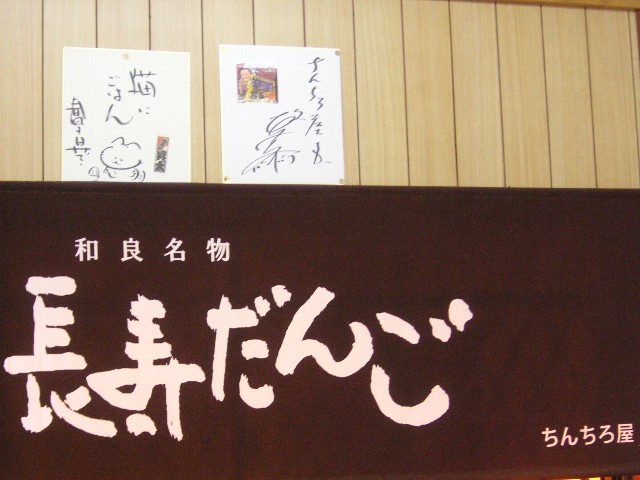 猫に
ごはん
ちんちろ屋さん
和良名物
長寿だんご
ちんちろ屋